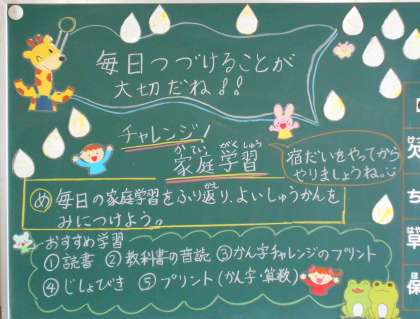 毎日つづけることが
大切だね!!
チャレンジ!
かてい がくしゅう
家庭学習
宿だいをやってから
やりましょうね。
め 毎日の家庭学習をふり返り、よいしゅうかんを
みにつけよう。
おすすめ学習
①読書 ②教科書の音読 ③かん字チャレンジのプリント
④じしょびき ⑤プリント(かん字・算数)